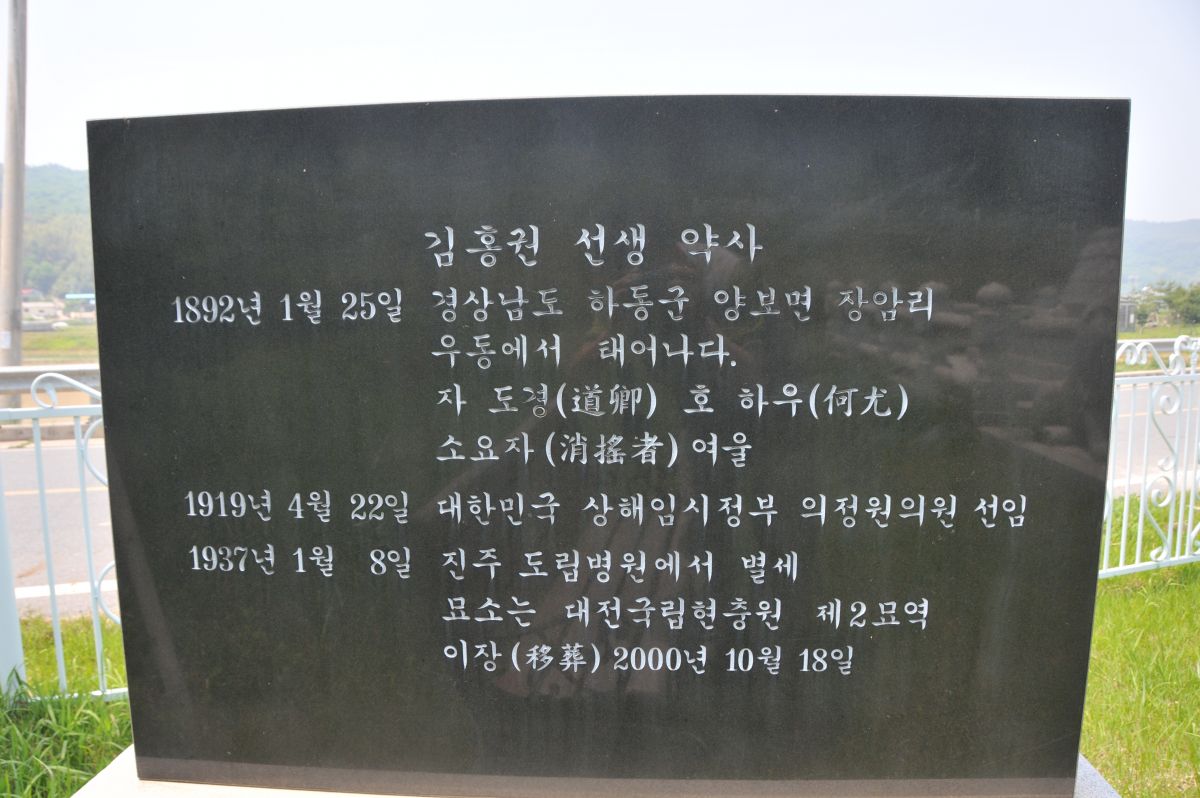 김홍권 선생 약사
1892년 1월 25일 경상남도 하동군 양보면 장암리
우동에서 태어나다.
자 도경(道卿) 호 하우(何尤)
소요자(消搖者)여울
1919년 4월 22일 대한민국 상해임시정부 의정원의원 선임
1937년 1월 8일 진주 도립병원에서 별세
묘소는 대전국립현충원 제2묘역
이장(移葬)2000년 10월 18일